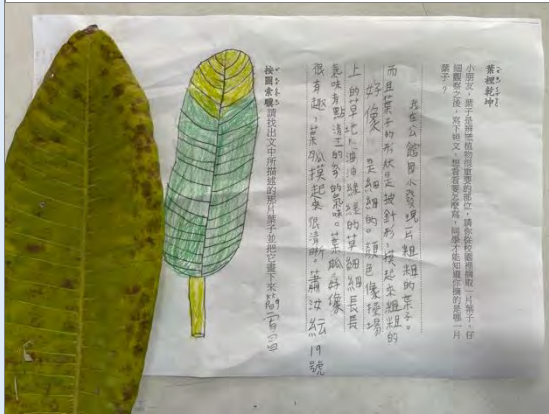 葉裡乾坤
小朋友，葉子是辨認植物很重要的部位，請你從校園裡摘取一片葉子，仔
細觀察之後，寫下短文，想想看要怎麼寫，同學才能知道你摘的是哪一片
葉子？
我在公館國小發現一片粗粗的葉子。
而且葉子的形狀是披針形，摸起來粗粗的
好像 是細細的。顏色像操場
上的草地，油油綠綠的草細細長長
意味有點清王的 的氣味。葉脈好像
很有趣，葉脈摸起來很清晰。蕭汝紜19號
按圖索驥 請找出文中所描述的那片葉子並把它畫下來